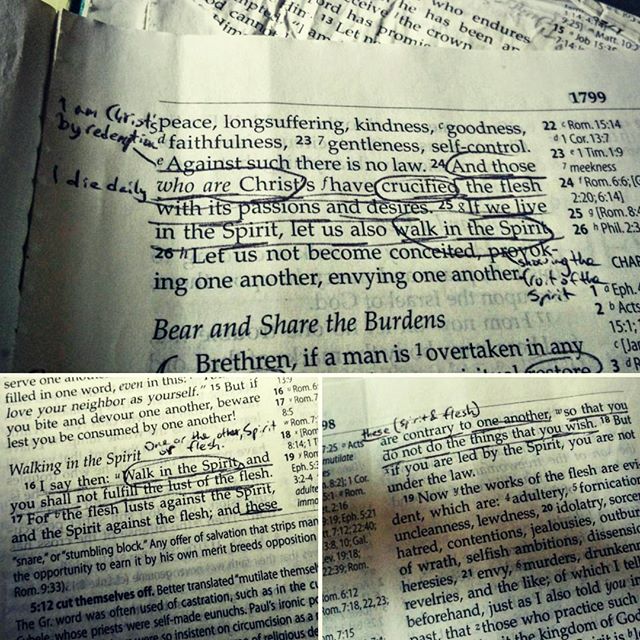 who endures
ceive the
he has been ap
crown
Lord has promis
1799
I am Christ's
by redemption
I die daily
peace, longsuffering, kindness, c goodness,
d faithfulness, 23 7 gentleness, self-control.
e Against such there is no law. 24 And those
who are Christ's f have crucified the flesh
with its passions and desires. 25 g If we live
in the Spirit, let us also walk in the Spirit.
26 h Let us not become conceited, provok-
ing one another, envying one another.
showing the
fruit of the
Spirit
Bear and Share the Burdens
Brethren, if a man is 1 overtaken in any
22 c Rom. 15:14
d 1 Cor. 13:7
23 e 1 Tim. 1:9
7 meekness
24 f Rom. 6:6; [G
2:20; 6:14]
25 g [Rom. 8:4
26 h Phil. 2:3
CHAP
1 a Eph. 4
2 b Acts
15:1;
c [Ja
3 d R
serve one another
filled in one word, even in this:
love your neighbor as yourself." 15 But if
you bite and devour one another, beware
lest you be consumed by one another!
One or the other, Spirit
or flesh.
Walking in the Spirit
16 I say then: Walk in the Spirit, and
you shall not fulfill the lust of the flesh.
17 For the flesh lusts against the Spirit,
and the Spirit against the flesh; and these
"snare," or "stumbling block." Any offer of salvation that strips man
the opportunity to earn it by his own merit breeds opposition
Rom. 9:33).
5:12 cut themselves off. Better translated "mutilate themsel
The Gr. word was often used of castration, such as in the cu
whose priests were self-made eunuchs. Paul's ironic p
were so insistent on circumcision as a
13:9
16 n Rom. 6:
17 o Rom.
8:5
18 r [Rom
8:14; 1 T
19 s Rom
Eph. 5:3
3:2-4
adulte
immo
98
these (spirit & flesh)
are contrary to one another, so that you
do not do the things that you wish. 18 But
if you are led by the Spirit, you are not
under the law.
19 Now the works of the flesh are evi-
dent, which are: 4 adultery, 5 fornication,
uncleanness, lewdness, 20 idolatry, sorcer
hatred, contentions, jealousies, outbur
of wrath, selfish ambitions, dissensi
heresies, 21 envy, 6 murders, drunken
revelries, and the like; of which I tell
beforehand, just as I also told you i
past, that z those who practice such
the kingdom of God
7:25 a Acts
mutilate
8:2]; 1 Cor.
5:1 a Rom.
2:16
9:19; Eph. 5:21
t. 7:12; 22:40;
3:8, 10; Gal.
ev. 19:18;
22:39; Rom.
Rom. 6:12
Rom. 7:18, 22, 23;
m. 7:15